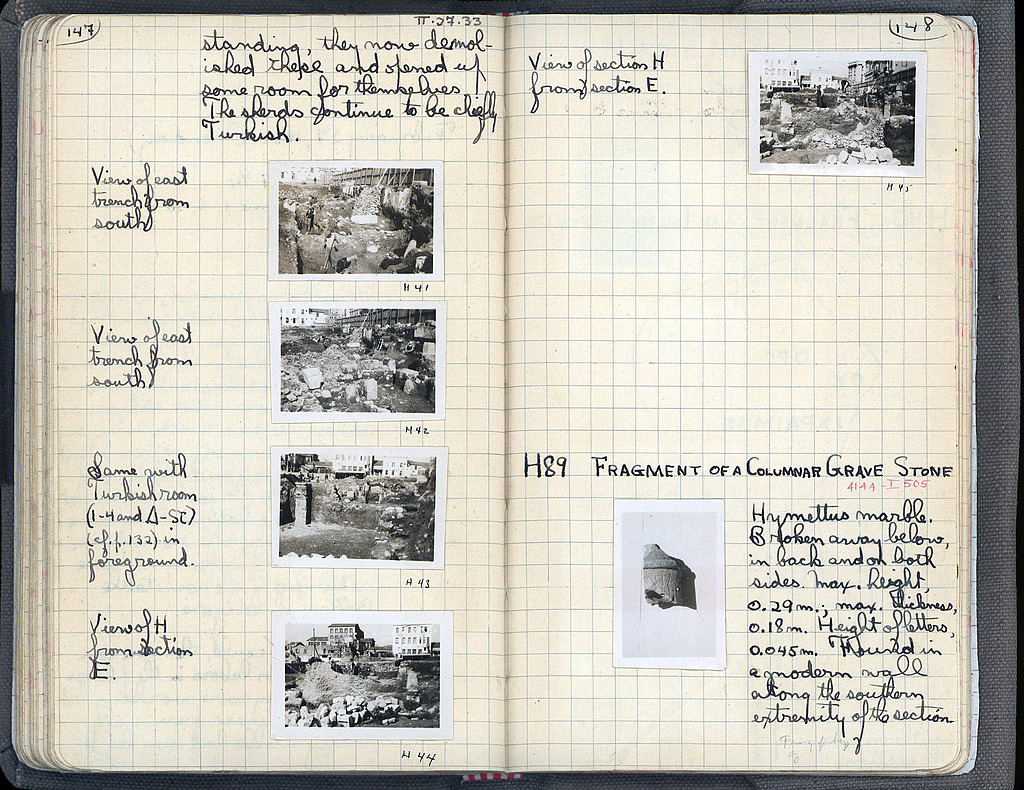 147
II.27.33
standing, they now demol-
ished these and opened up
some room for themselves.
The sherds continue to be chiefly
Turkish.
View of east
trench from
south
H 41
View of east
trench from
south
H 42
Same with
Turkish room
(1-4 and Δ-ΣΤ)
(cf. p. 132) in
foreground.
H 43
View of H
from section
E.
H 44
148
View of section H
from section E.
H 45
H89 FRAGMENT OF A COLUMNAR GRAVE STONE
I 505
Hymettus marble.
Broken away below,
in back and on both
sides. Max. height,
0.29 m.; max. thickness,
0.18 m. Height of letters,
0.045 m. Found in
a modern wall
along the southern
extremity of the section.